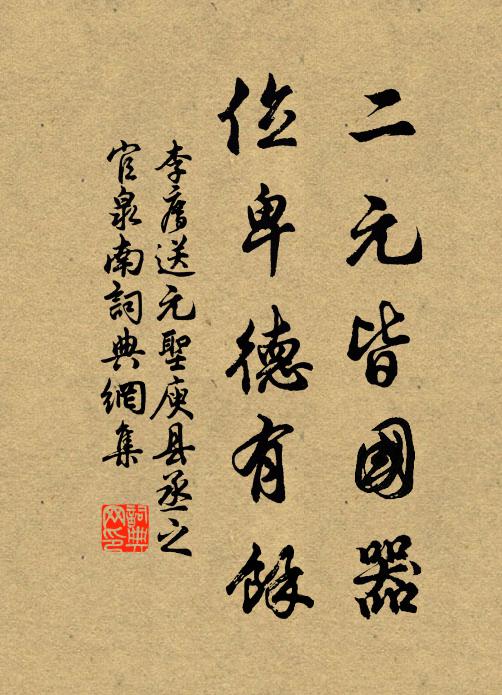 二元皆國器
位卑德有餘
李廌送元聖庾县丞之
官泉南詞典網集
詞典
网印